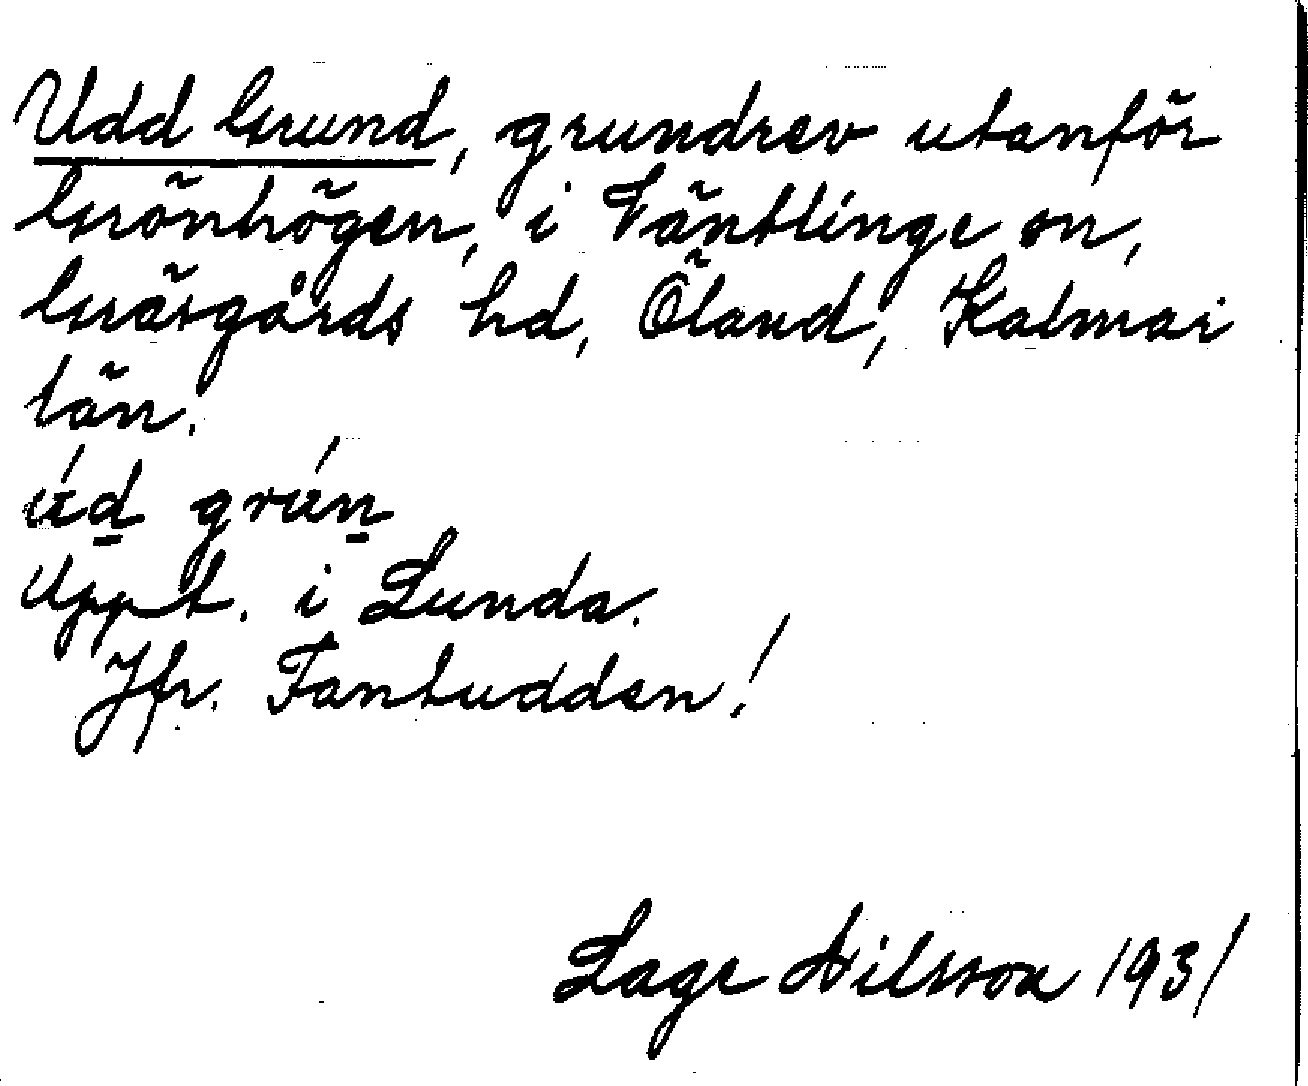 Udd Grund, grundrev utanför
Grönhögen, i Väntlinge sn,
Gräsgårds hd, Öland, Kalmar
län.
úd grún
Uppt. i Lunda.
Jfr. Fantudden!
Lage Nilsson 1931